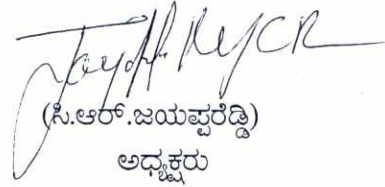 (ಸಿ.ಆರ್.ಜಯಪ್ಪರೆಡ್ಡಿ)
ಅಧ್ಯಕ್ಷರು